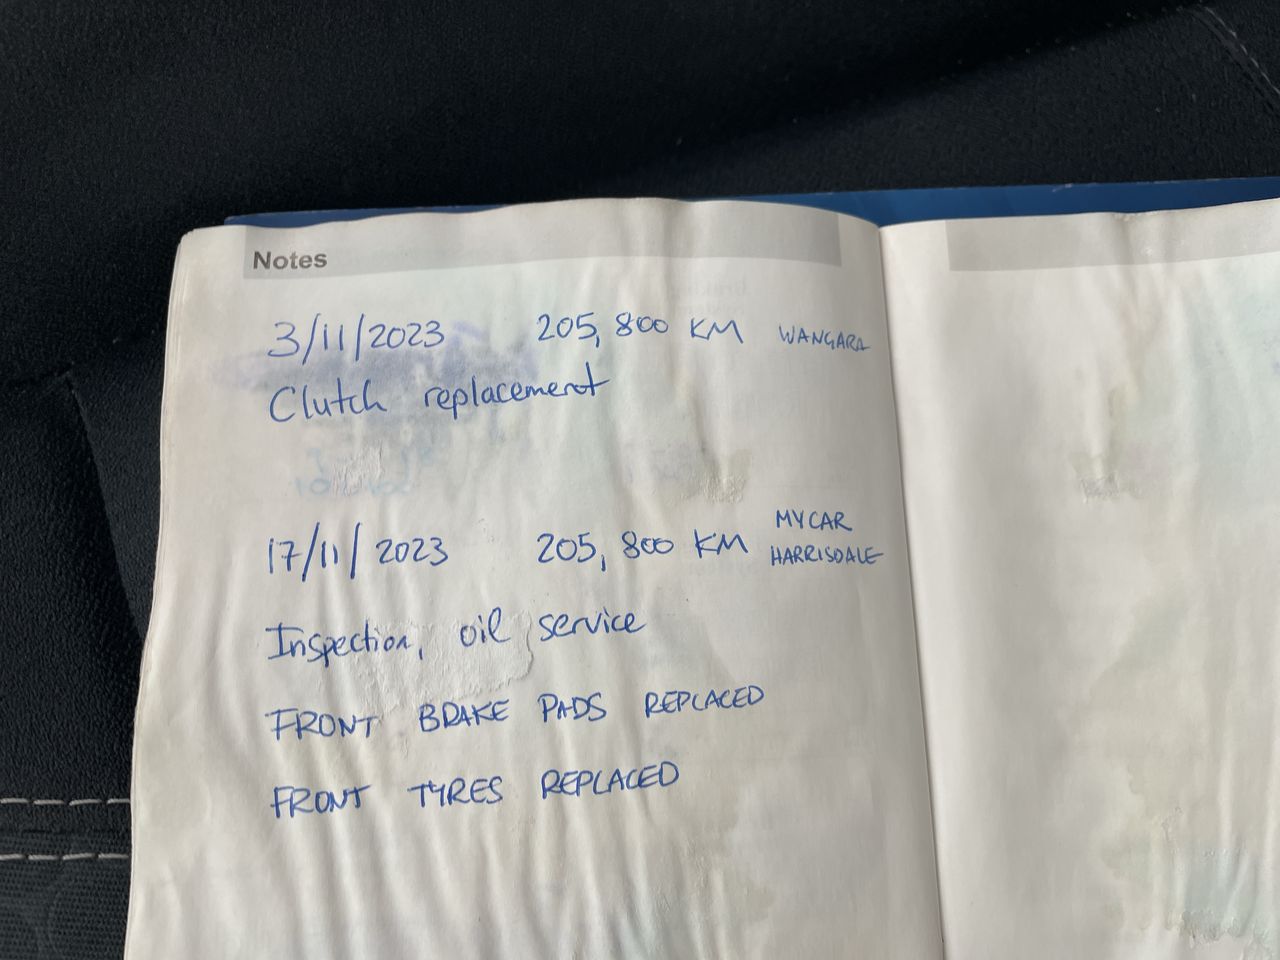 Notes
3/11/2023 205,800 KM WANGARA
Clutch replacement
17/11/2023 205,800 KM MYCAR HARRISDALE
Inspection, oil service
FRONT BRAKE PADS REPLACED
FRONT TYRES REPLACED